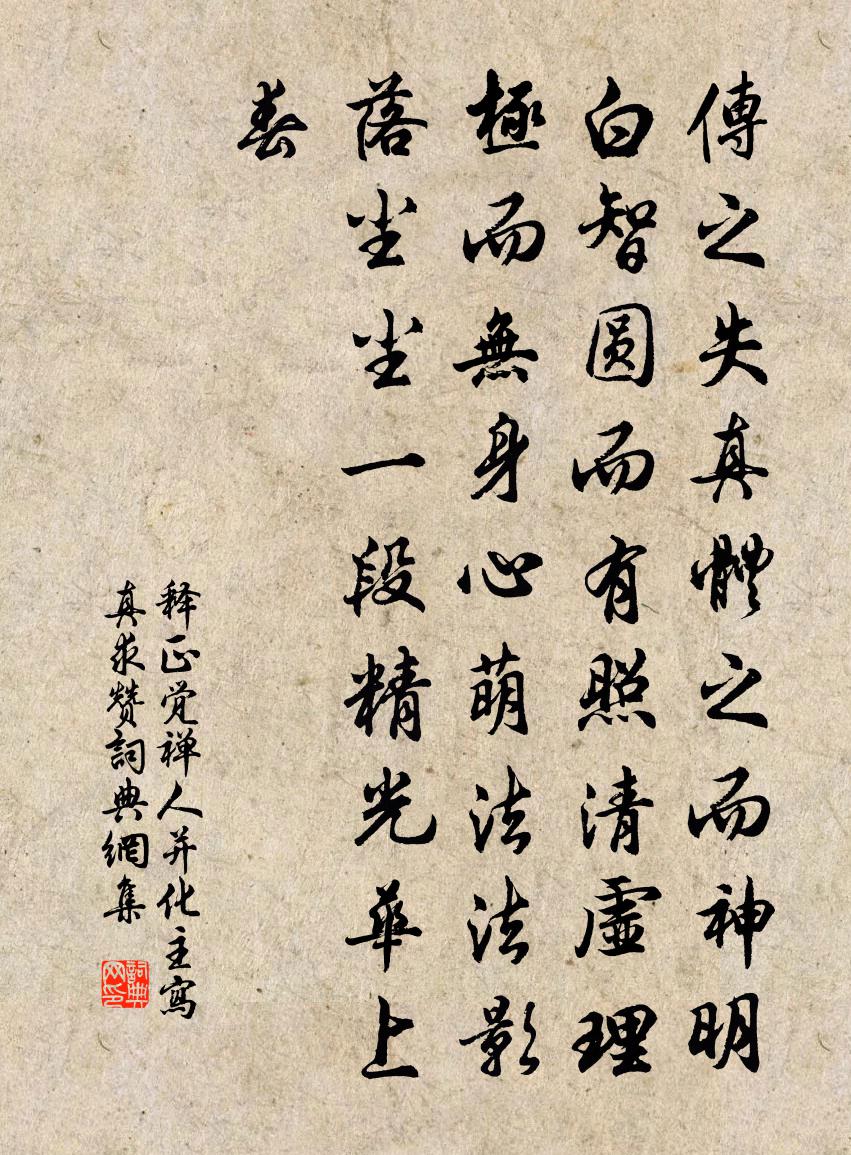 傳之失真體之而神明
白智圓而有照清虛理
極而無身心萌法法影
落尘尘一段精光華上
春
释正觉禅人并化主寫
真求赞詞典網集
詞典网印